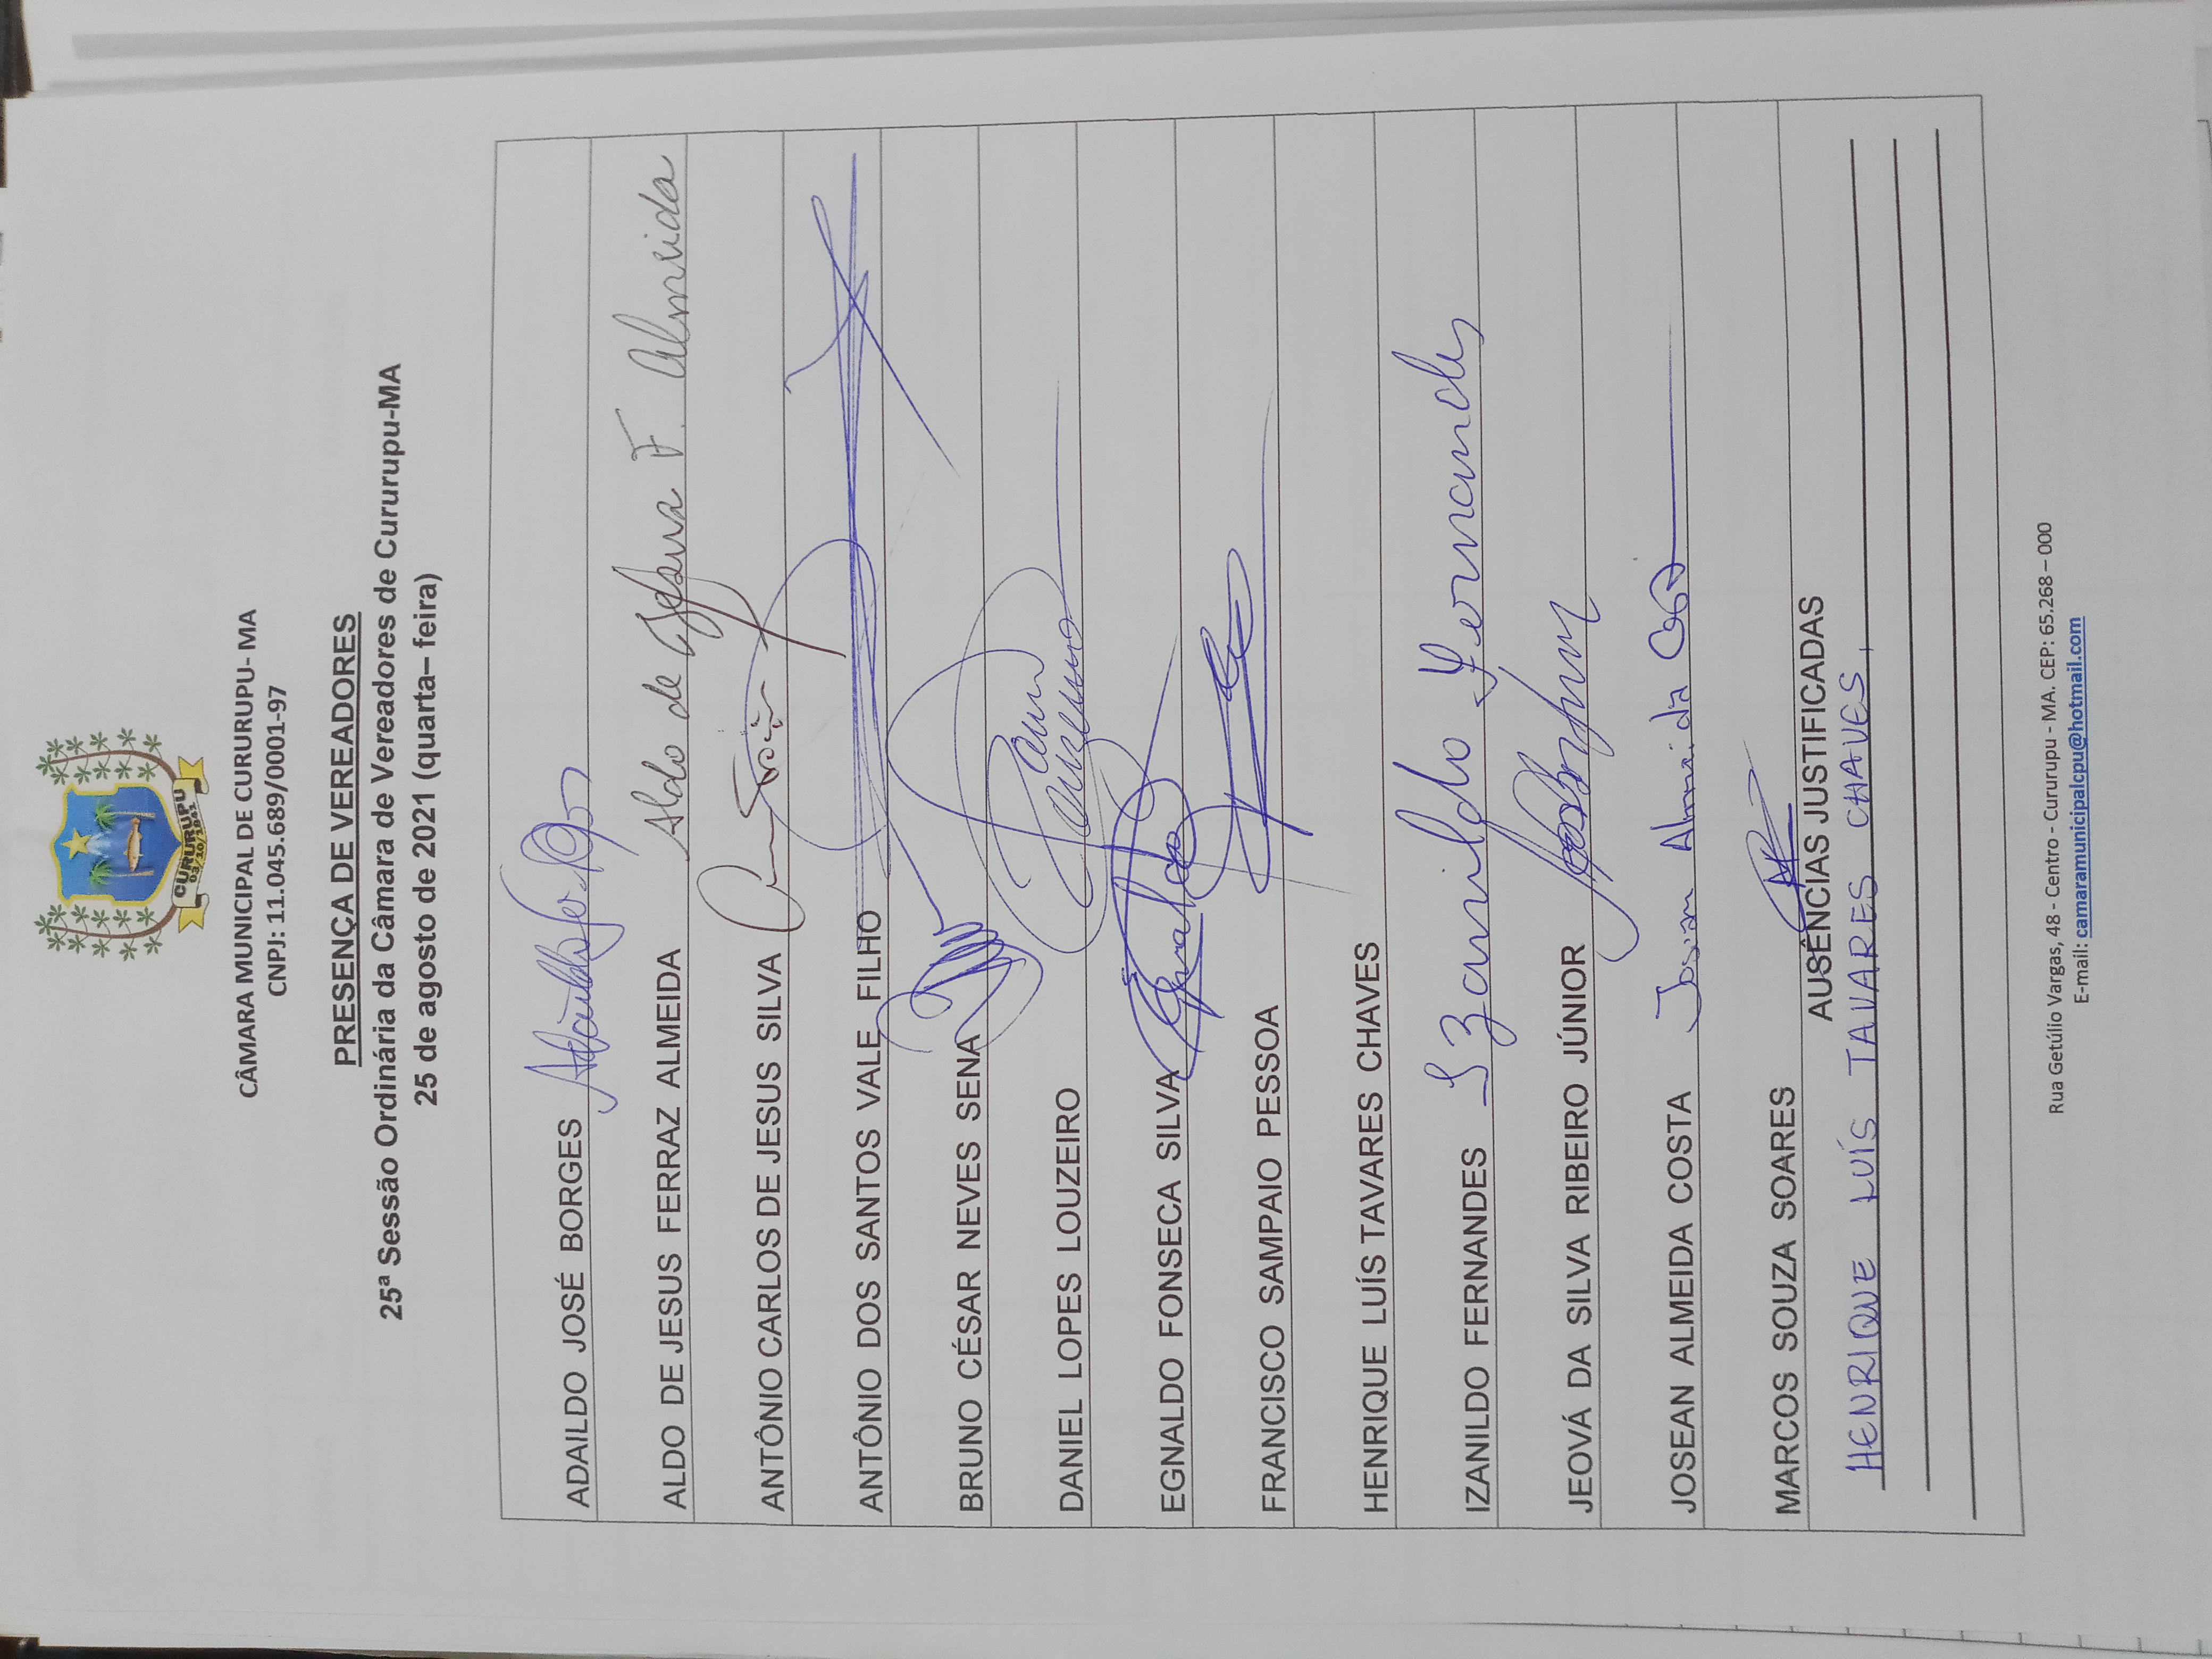 CURURUPU
03/10/1841
CÂMARA MUNICIPAL DE CURURUPU- MA
CNPJ: 11.045.689/0001-97
PRESENÇA DE VEREADORES
25ª Sessão Ordinária da Câmara de Vereadores de Cururupu-MA
25 de agosto de 2021 (quarta– feira)
ADAILDO JOSÉ BORGES
ALDO DE JESUS FERRAZ ALMEIDA Aldo de Jesus F. Almeida
ANTÔNIO CARLOS DE JESUS SILVA
ANTÔNIO DOS SANTOS VALE FILHO
BRUNO CÉSAR NEVES SENA
DANIEL LOPES LOUZEIRO
EGNALDO FONSECA SILVA Egnaldo
FRANCISCO SAMPAIO PESSOA
HENRIQUE LUÍS TAVARES CHAVES
IZANILDO FERNANDES Izanildo Fernandes
JEOVÁ DA SILVA RIBEIRO JÚNIOR
JOSEAN ALMEIDA COSTA Josean Almeida Costa
MARCOS SOUZA SOARES
AUSÊNCIAS JUSTIFICADAS
HENRIQUE LUÍS TAVARES CHAVES,
Rua Getúlio Vargas, 48 - Centro - Cururupu - MA. CEP: 65.268 – 000
E-mail: camaramunicipalcpu@hotmail.com